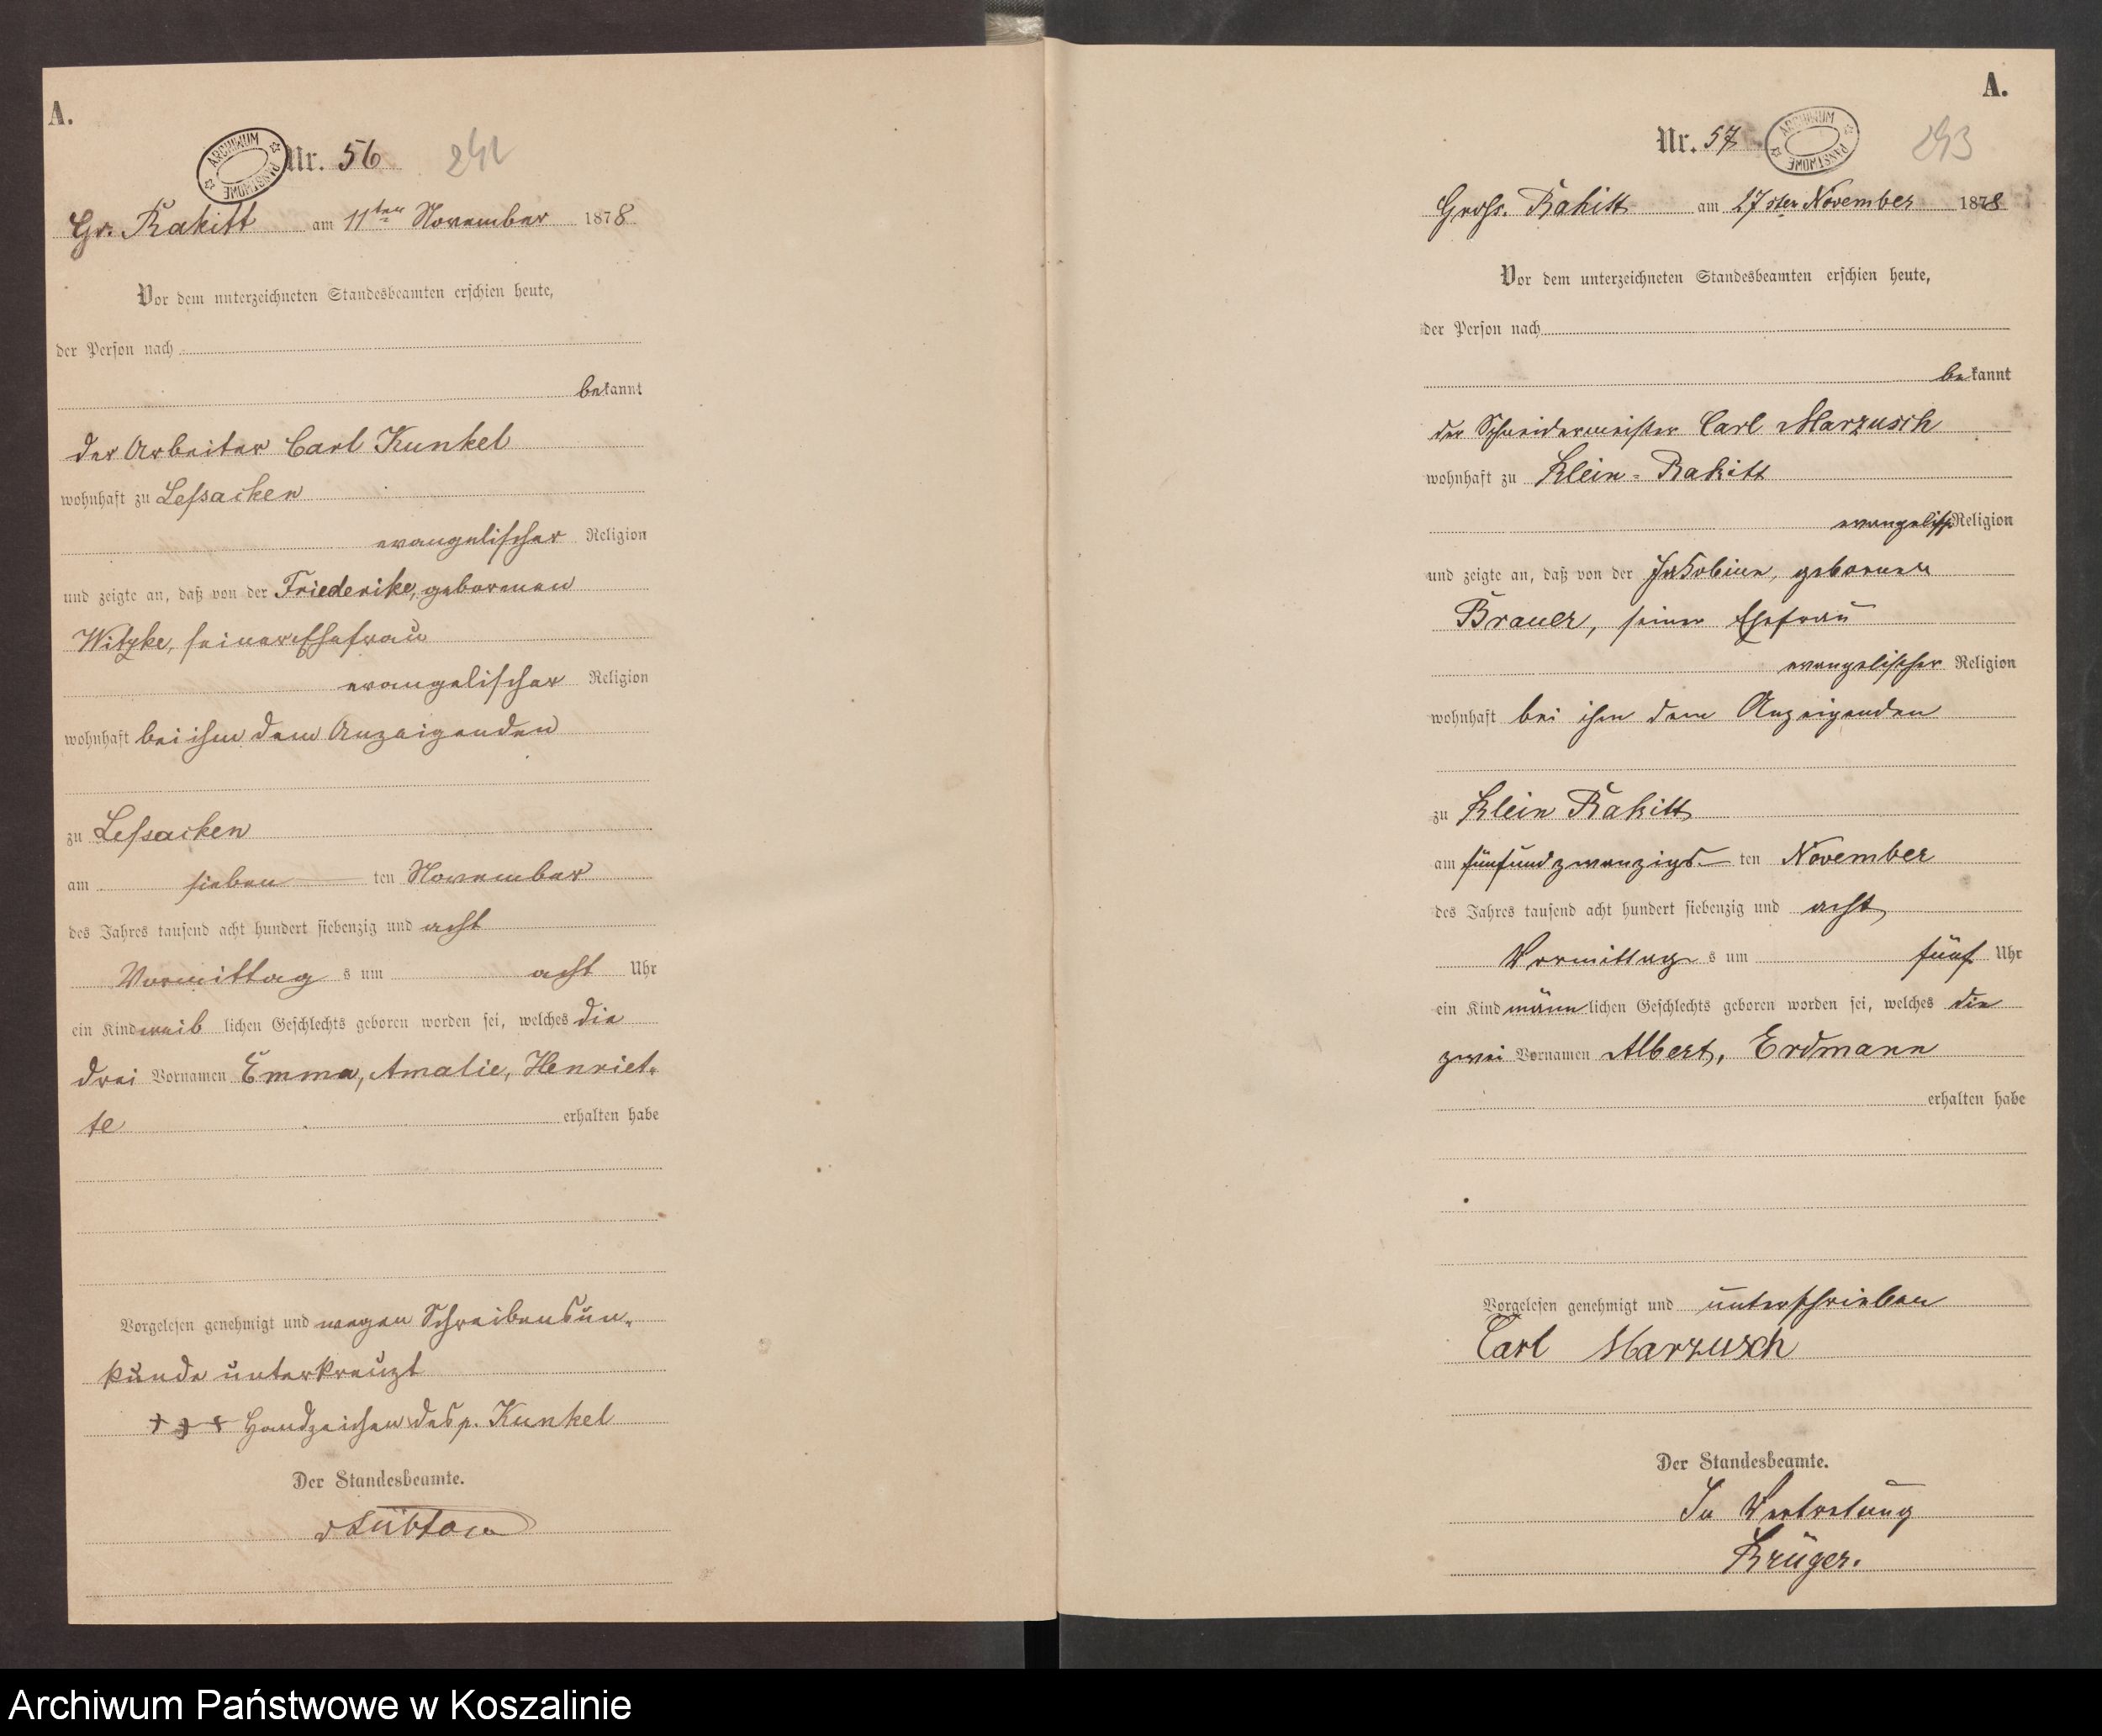 A.
Nr. 56
242
ARCHIWUM PAŃSTWOWE
Gr. Rakitt am 11ten November 1878
Vor dem unterzeichneten Standesbeamten erschien heute,
der Person nach
bekannt
der Arbeiter Carl Kunkel
wohnhaft zu Lessacken
evangelischer Religion
und zeigte an, daß von der Friederike, geborenen
Witzke, seiner Ehefrau
evangelischer Religion
wohnhaft bei ihm dem Anzeigenden
zu Lessacken
am sieben ten November
des Jahres tausend acht hundert siebenzig und acht
Vormittag s um acht Uhr
ein Kind weib lichen Geschlechts geboren worden sei, welches die
drei Vornamen Emma, Amalie, Henriet-
te erhalten habe
Vorgelesen genehmigt und wegen Schreibensun-
kunde unterkreuzt
+ + + Handzeichen des p. Kunkel
Der Standesbeamte.
A.
Nr. 57
ARCHIWUM PAŃSTWOWE
243
Gross. Rakitt am 27sten November 1878
Vor dem unterzeichneten Standesbeamten erschien heute,
der Person nach
bekannt
der Schneidermeister Carl Marzusch
wohnhaft zu Klein-Rakitt
evangelisch Religion
und zeigte an, daß von der Jakobine, geborenen
Brauer, seiner Ehefrau
evangelischer Religion
wohnhaft bei ihm dem Anzeigenden
zu Klein Rakitt
am fünfundzwanzigs ten November
des Jahres tausend acht hundert siebenzig und acht
Vormittag s um fünf Uhr
ein Kind männ lichen Geschlechts geboren worden sei, welches die
zwei Vornamen Albert, Erdmann
erhalten habe
Vorgelesen genehmigt und unterschrieben
Carl Marzusch
Der Standesbeamte.
In Vertretung
Krüger.
Archiwum Państwowe w Koszalinie